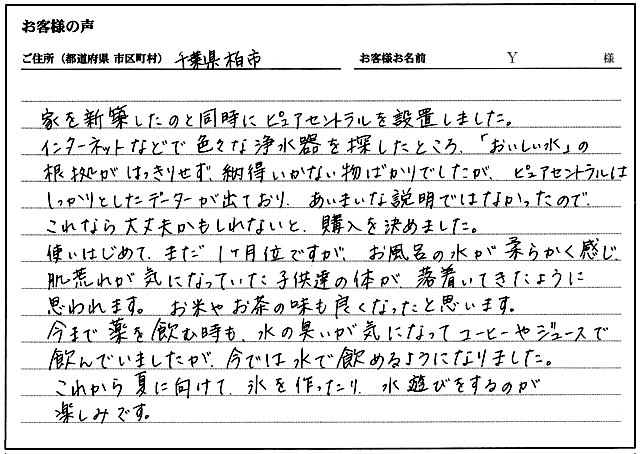 お客様の声
ご住所（都道府県 市区町村） 千葉県柏市 お客様お名前 Y 様
家を新築したのと同時にピュアセントラルを設置しました。
インターネットなどで色々な浄水器を探したところ、「おいしい水」の
根拠がはっきりせず、納得いかない物ばかりでしたが、ピュアセントラルは
しっかりとしたデーターが出ており、あいまいな説明ではなかったので、
これなら大丈夫かもしれないと、購入を決めました。
使いはじめて、まだ1ヶ月位ですが、お風呂の水が柔らかく感じ、
肌荒れが気になっていた子供達の体が、落着いてきたように
思われます。お米やお茶の味も良くなったと思います。
今まで薬を飲む時も、水の臭いが気になってコーヒーやジュースで
飲んでいましたが、今では水で飲めるようになりました。
これから夏に向けて、氷を作ったり、水遊びをするのが
楽しみです。